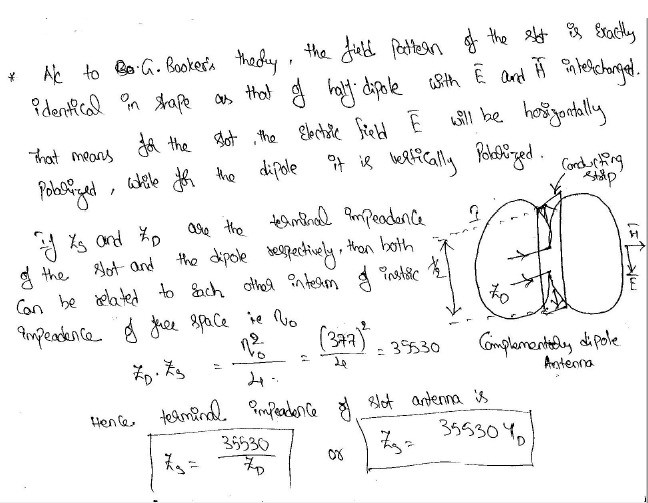 * A/c to G. Booker's theory, the field Pattern of the slot is Exactly
identical in shape as that of half-dipole with E̅ and H̅ interchanged.
That means for the slot, the Electric field E̅ will be horizontally
Polarized, while for the dipole it is vertically Polarized.
Conducting
strip
If Zs and ZD are the terminal impeadance
of the slot and the dipole respectively, then both
Can be related to each other interm of instric
impeadence of free space ie η0
ZD.Zs = η0²/4 = (377)²/4 = 35530
λ/2
ZD
H̅
E̅
Complementary dipole
Antenna
Hence terminal impeadence of slot antenna is
Zs = 35530/ZD or Zs = 35530 YD